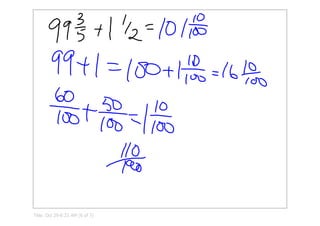 99 3/5 + 1 1/2 = 101 10/100
99 + 1 = 100 + 1 10/100 = 16 10/100
60/100 + 50/100 = 1 10/100
110/100
Title: Oct 20-8:23 AM (6 of 7)